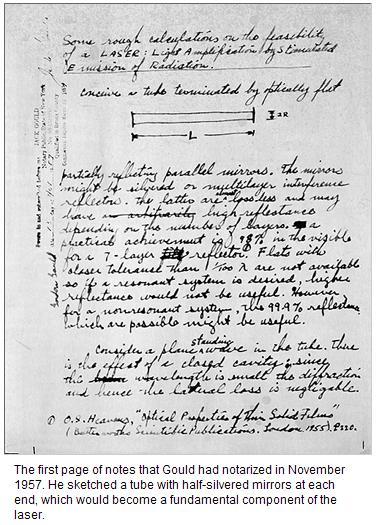 Some rough calculations on the feasibility
of a LASER: Light Amplification by Stimulated
Emission of Radiation.
conceive a tube terminated by optically flat
2R
L
partially reflecting parallel mirrors. The mirrors
might be silvered or multilayer interference
reflectors. The latter are almost lossless and may
have high reflectance
depending on the number of layers. a
practical achievement is 98% in the visible
for a 7-layer reflector. Flats with
closer tolerance than 1/100 λ are not available
so if a resonant system is desired, higher
reflectance would not be useful. However
for a nonresonant system, the 99.9% reflectances
which are possible might be useful.
Consider a plane standing wave in the tube. There
is the effect of a closed cavity; since
the wavelength is small the diffraction
and hence the lateral loss is negligable.
O.S. Heavens, "Optical Properties of Thin Solid Films"
(Butterworths Scientific Publications, London 1955), p220.
JACK GOULD
The first page of notes that Gould had notarized in November
1957. He sketched a tube with half-silvered mirrors at each
end, which would become a fundamental component of the
laser.